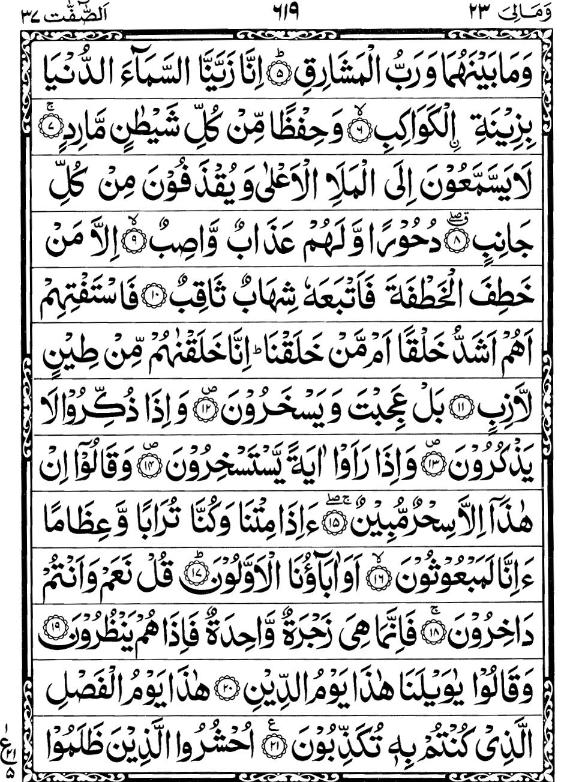 وَمَالِیَ ٢٣ ٦١٩ اَلصّٰٓفّٰت ٣٧
وَمَا بَيْنَهُمَا وَرَبُّ الْمَشَارِقِ ۝٥ؕ اِنَّا زَيَّنَّا السَّمَآءَ الدُّنْيَا
بِزِيْنَةِ ِۨالْكَوَاكِبِ ۝٦ۙ وَحِفْظًا مِّنْ كُلِّ شَيْطٰنٍ مَّارِدٍ ۝٧ۚ
لَا يَسَّمَّعُوْنَ اِلَى الْمَلَاِ الْاَعْلٰى وَيُقْذَفُوْنَ مِنْ كُلِّ
جَانِبٍ ۝٨ۖق دُحُوْرًا وَّلَهُمْ عَذَابٌ وَّاصِبٌ ۝٩ۙ اِلَّا مَنْ
خَطِفَ الْخَطْفَةَ فَاَتْبَعَهٗ شِهَابٌ ثَاقِبٌ ۝١٠ فَاسْتَفْتِهِمْ
اَهُمْ اَشَدُّ خَلْقًا اَمْ مَّنْ خَلَقْنَا ؕ اِنَّا خَلَقْنٰهُمْ مِّنْ طِيْنٍ
لَّازِبٍ ۝١١ بَلْ عَجِبْتَ وَيَسْخَرُوْنَ ۝١٢ۖ وَاِذَا ذُكِّرُوْا لَا
يَذْكُرُوْنَ ۝١٣ۖ وَاِذَا رَاَوْا اٰيَةً يَّسْتَسْخِرُوْنَ ۝١٤ۖ وَقَالُوْٓا اِنْ
هٰذَآ اِلَّا سِحْرٌ مُّبِيْنٌ ۝١٥ۚۖ ءَاِذَا مِتْنَا وَكُنَّا تُرَابًا وَّعِظَامًا
ءَاِنَّا لَمَبْعُوْثُوْنَ ۝١٦ۙ اَوَاٰبَآؤُنَا الْاَوَّلُوْنَ ۝١٧ؕ قُلْ نَعَمْ وَاَنْتُمْ
دَاخِرُوْنَ ۝١٨ۚ فَاِنَّمَا هِيَ زَجْرَةٌ وَّاحِدَةٌ فَاِذَا هُمْ يَنْظُرُوْنَ ۝١٩
وَقَالُوْا يٰوَيْلَنَا هٰذَا يَوْمُ الدِّيْنِ ۝٢٠ هٰذَا يَوْمُ الْفَصْلِ
الَّذِيْ كُنْتُمْ بِهٖ تُكَذِّبُوْنَ ۝٢١ۧ اُحْشُرُوا الَّذِيْنَ ظَلَمُوْا
١
ع ٢١
٥